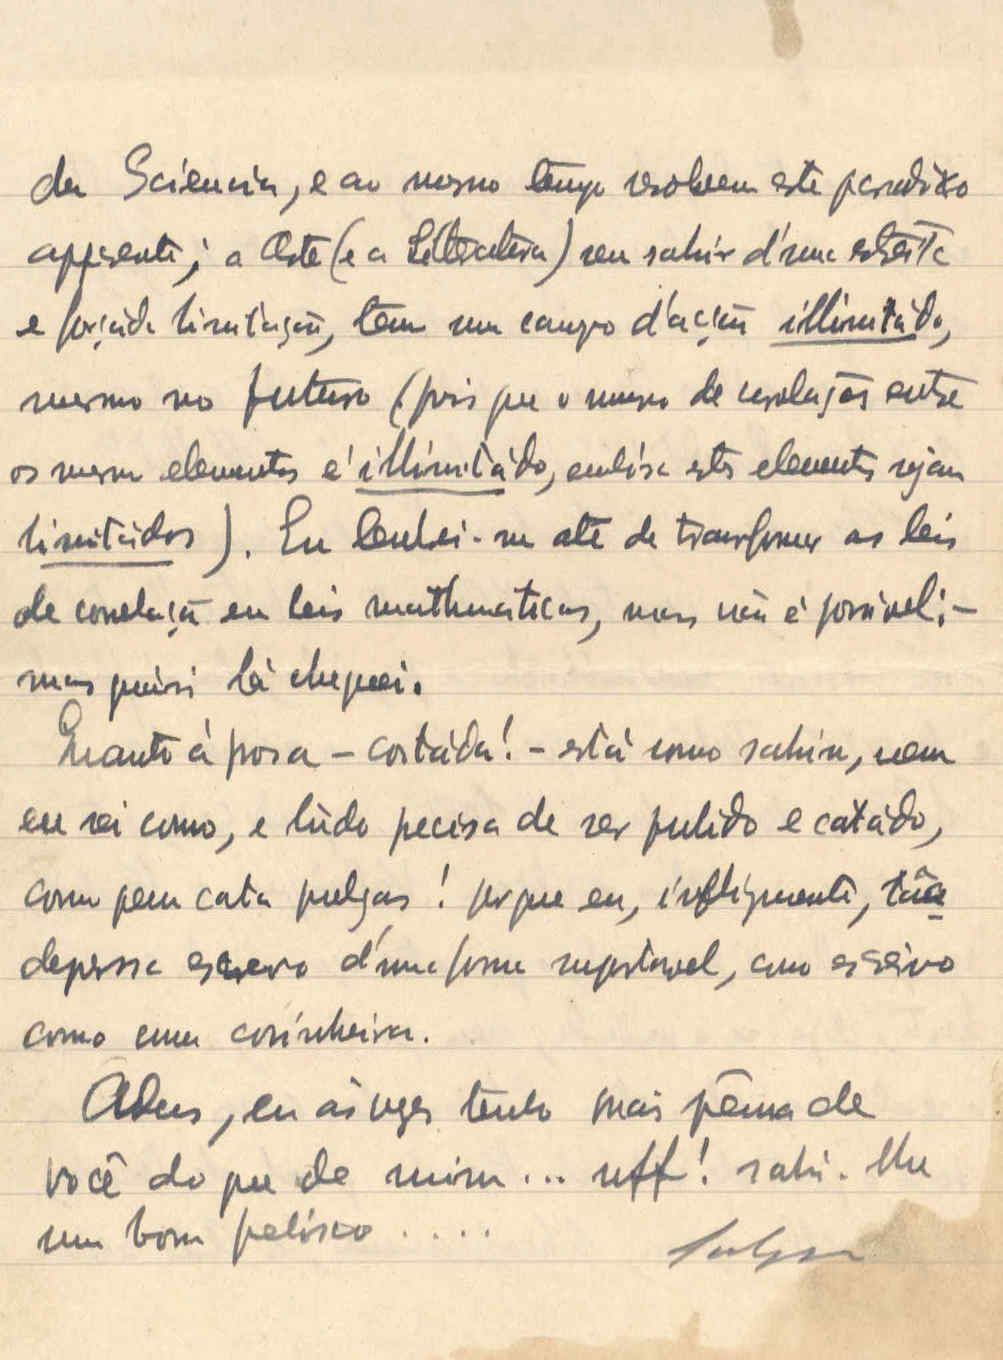 da Sciencia, e ao mesmo tempo resolvem este paradoxo
apparente; a Arte (e a Litteratura) sem sahir d'uma estreita
e forçada limitação, tem um campo d'acção illimitádo,
mesmo no futuro (pois que o numero de correlações entre
os mesmos elementos é illimitádo, embóra estes elementos sejam
limitádos). Eu lembrei-me até de transformar as leis
de correlação em leis mathematicas, mas não é possivel; –
mas quási lá cheguei.
Quanto á prosa – coitáda! – está como sahiu, nem
eu sei como, e túdo precisa de ser pulido e catádo,
como quem cata pulgas! porque eu, infelizmente, tão
depressa escrevo d'uma forma suportavel, como escrevo
como uma cosinheira.
Adeus, eu ás vezes tenho mais pêna de
você do que de mim... uff! sahi-lhe
um bom pelísco .....